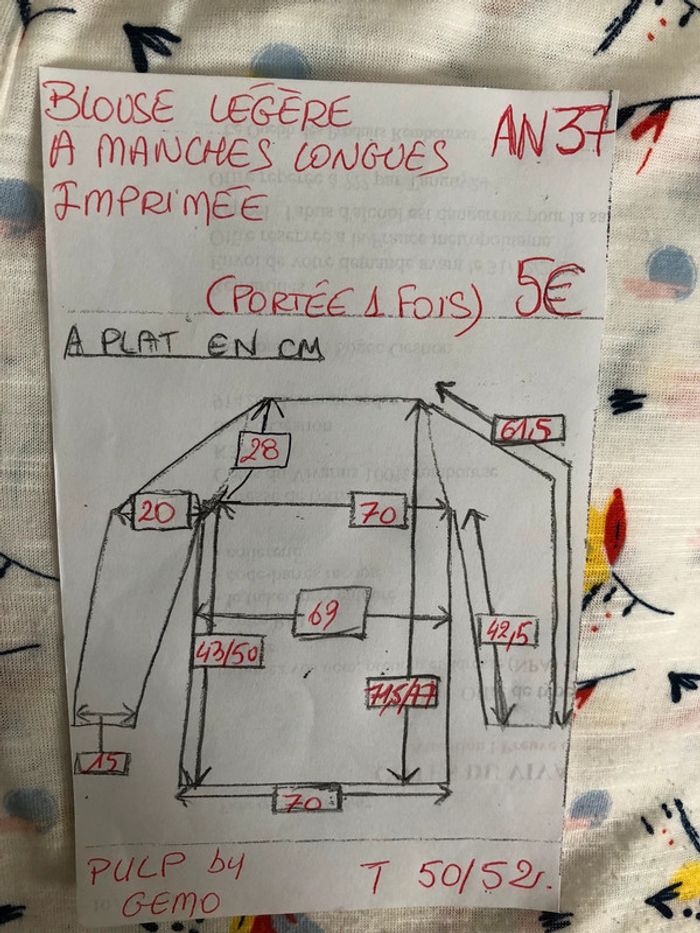 BLOUSE LÉGÈRE
A MANCHES LONGUES
IMPRIMÉE
AN 37
(PORTÉE 1 FOIS) 5€
A PLAT EN CM
61,5
28
20
70
69
42,5
43/50
71,5/77
15
70
PULP by
GEMO
T 50/52.